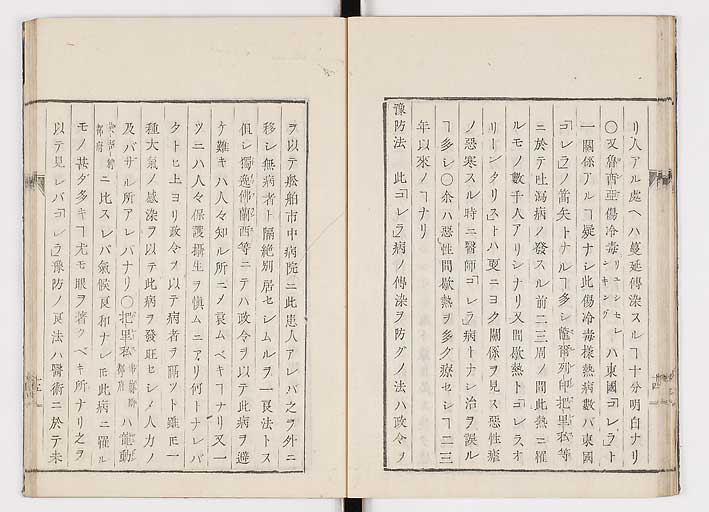 リ人アル處ヘハ蔓延傳染スルヿ十分明白ナリ
〇又魯西亞傷冷毒リユシセンシキングハ東國「コレラ」ト
一關係アルヿ疑ナシ此傷冷毒樣熱病數バ東國
「コレラ」ノ當矢トナルヿ多シ龍動列印把里私等
ニ於テ吐瀉病ノ發スル前二三周ノ間此熱ニ罹
ルモノ數千人アリシナリ又間歇熱トコレラ、オ
リーンタリストハ更ニヨク關係ヲ見ス惡性瘧
ノ惡寒スル時ニ醫師「コレラ」病トナシ治ヲ誤ル
ヿ多シ〇余ハ惡性間歇熱ヲ多グ療セシヿ二三
年以來ノヿナリ
豫防法 此「コレラ」病ノ傳染ヲ防グノ法ハ政令ヲ
ヲ以テ於舶市中病院ニ此患人アレバ之ヲ外ニ
移シ無病者ト隔絶別居セシムルヲ一良法トス
但シ獨逸佛蘭西等ニテハ政令ヲ以テ此病ヲ避
ケ難キハ人々知ル所ニメ哀ムベキヿナリ又一
ツニハ人々保護攝生ヲ愼ムニアリ何トナレバ
タトヒ上ヨリ政令ヲ以テ病者ヲ隔ツト雖モ一
種大氣ノ感染ヲ以テ此病ヲ發旺セシメ人力ノ
及バザル所アレバナリ〇把里私ハ龍動
ニ比スレバ氣候良和ナレ𪜈此病ニ罹ル
モノ甚ダ多キヿ尤モ眼ヲ著クベキ所ナリ之ヲ
以テ見レバ「コレラ」豫防ノ良法ハ醫術ニ於テ未